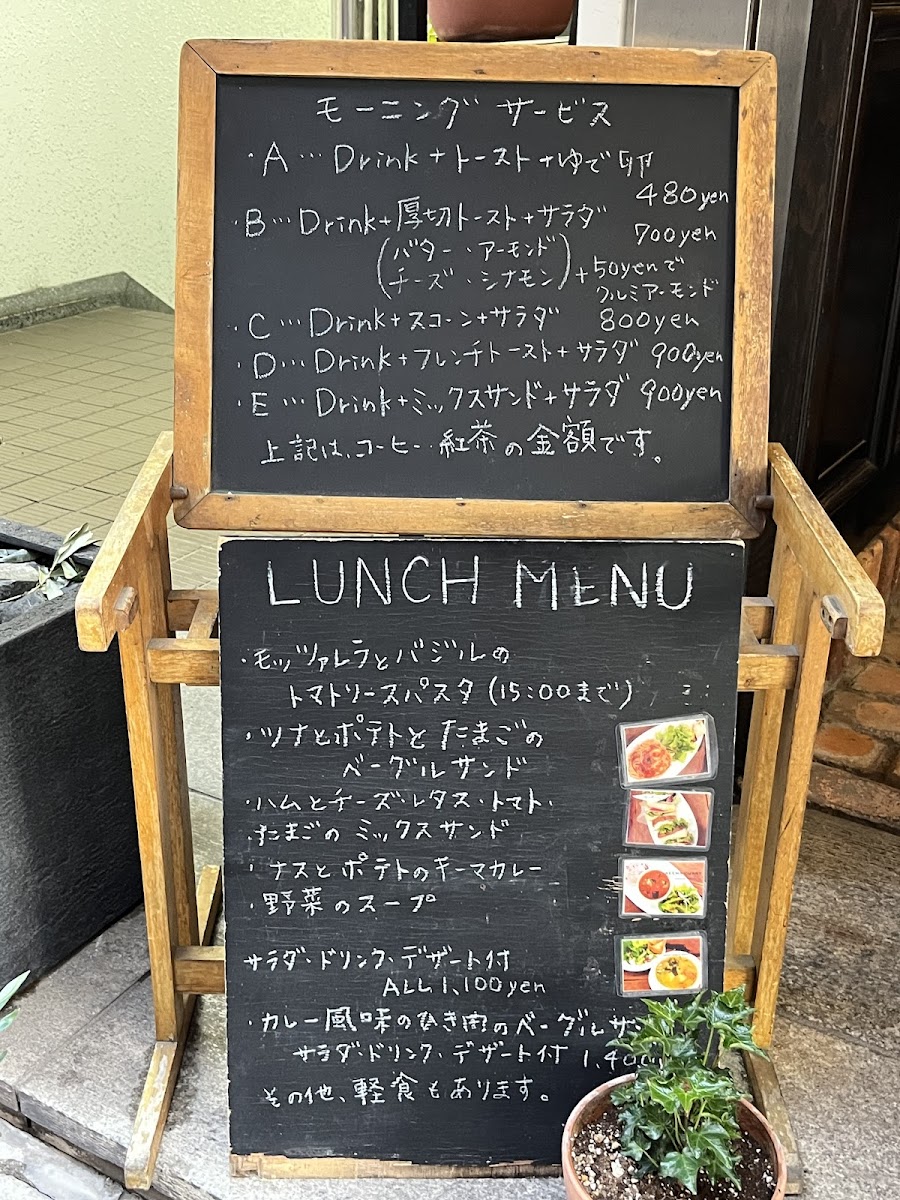 モーニングサービス
・A…Drink+トースト+ゆで卵
480yen
・B…Drink+厚切トースト+サラダ
700yen
(バター・アーモンド
チーズ・シナモン)+50yenで
クルミアーモンド
・C…Drink+スコーン+サラダ 800yen
・D…Drink+フレンチトースト+サラダ 900yen
・E…Drink+ミックスサンド+サラダ 900yen
上記は、コーヒー・紅茶の金額です。
LUNCH MENU
・モッツァレラとバジルの
トマトソースパスタ(15:00まで)
・ツナとポテトとたまごの
ベーグルサンド
・ハムとチーズ・レタス・トマト・
・たまごのミックスサンド
・ナスとポテトのキーマカレー
・野菜のスープ
サラダ・ドリンク・デザート付
ALL 1,100yen
・カレー風味のひき肉のベーグルサ
サラダ・ドリンク・デザート付 1,40
その他、軽食もあります。